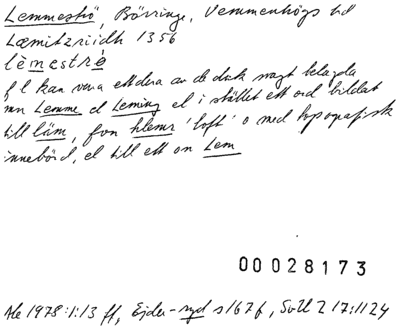 Lemmeströ, Börringe, Vemmenhögs hd
Læmitzriidh 1356
lèmestrè
f l kan vara ettdera av de dock svagt belagda
mn Lemme el Leming el i stället ett ord bildat
till läm, fvn hlemr 'loft' o med topografisk
innebörd, el till ett on Lem
00028173
Ale 1978:1:13 ff, Ejder-ryd s 167 f, SvOL 2 17:1124